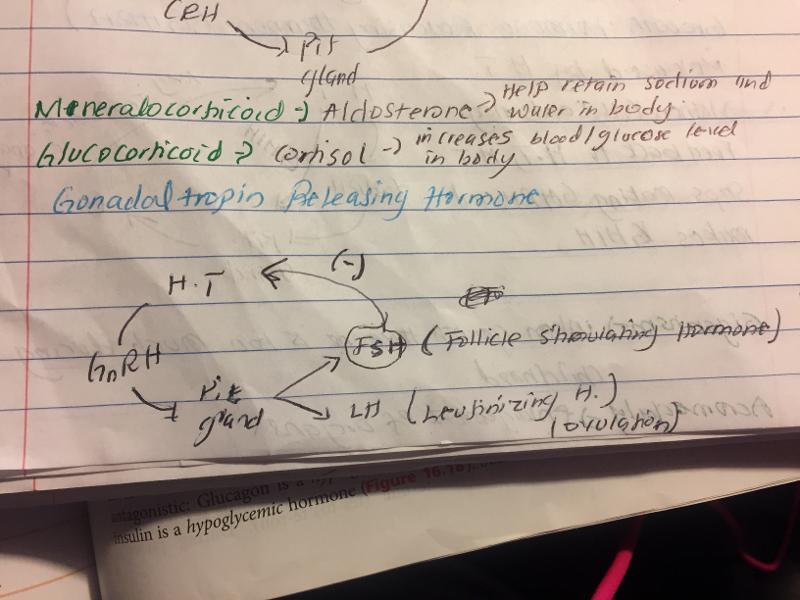 CRH
Pit
gland
Help retain sodium and
Mineralocorhicoid → Aldosterone → water in body
increases blood/glucose level
Glucocorhicoid → cortisol → in body
Gonadaltropin Releasing Hormone
(-)
H.T
FSH (Follicle Stimulating Hormone)
GnRH
Pit
gland
LH (Leutinizing H.)
(ovulation)
antagonistic: Glucagon is a
(Figure 16.18),
insulin is a hypoglycemic hormone